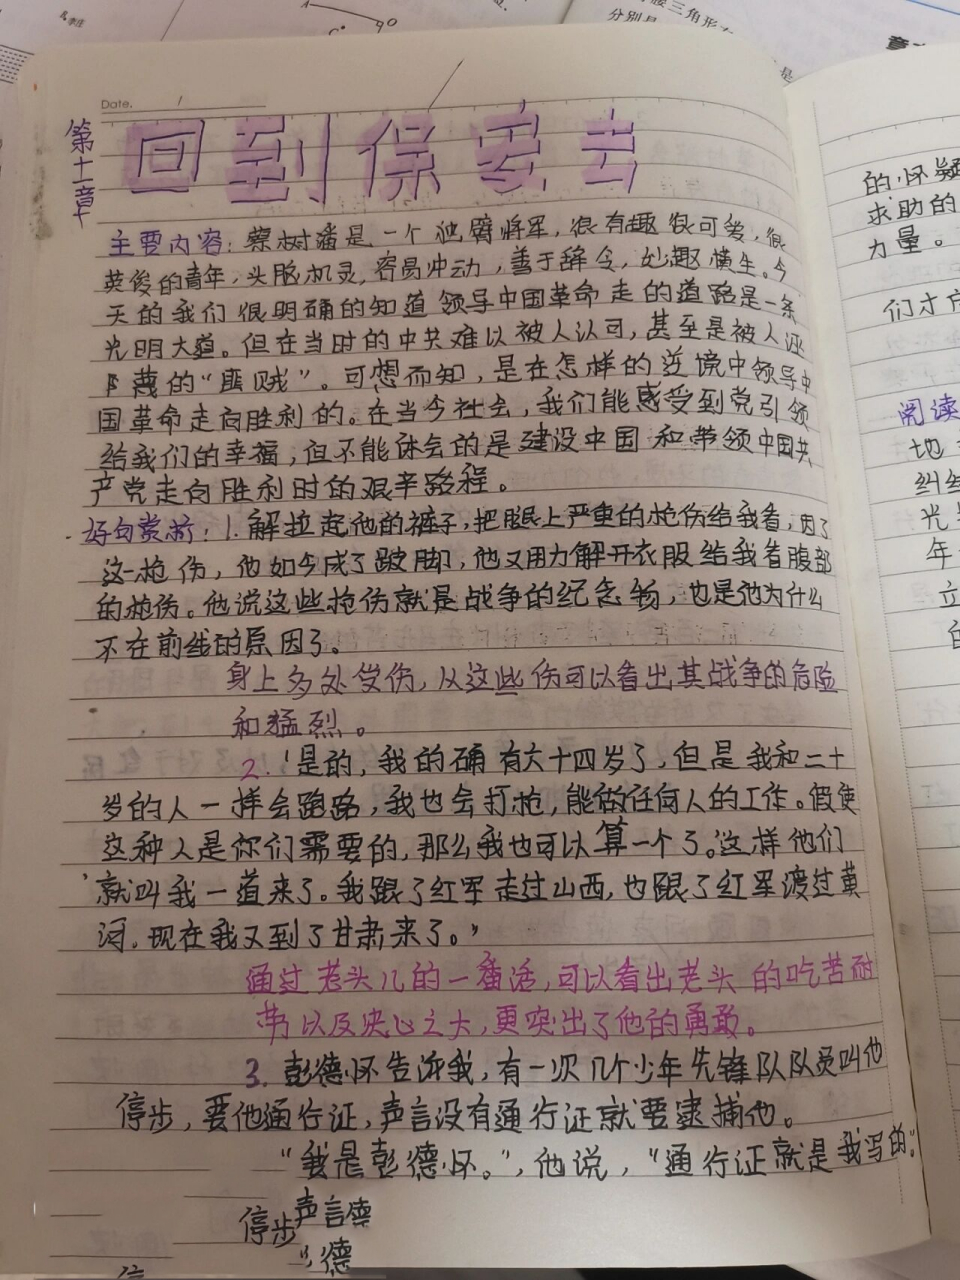 Date.
第十一章
回到保安去
主要内容：蔡树藩是一个独臂将军，很有趣很可爱，很
英俊的青年，头脑机灵，容易冲动，善于辞令，妙趣横生。今
天的我们很明确的知道领导中国革命走的道路是一条
光明大道。但在当时的中共难以被人认可，甚至是被人诬
蔑的“匪贼”。可想而知，是在怎样的逆境中领导中
国革命走向胜利的。在当今社会，我们能感受到党引领
给我们的幸福，但不能体会的是建设中国和带领中国共
产党走向胜利时的艰辛路程。
好句赏析：1.解拉起他的裤子，把腿上严重的枪伤给我看，因了
这一枪伤，他如今成了跛脚，他又用力解开衣服给我看腹部
的枪伤。他说这些枪伤就是战争的纪念物，也是他为什么
不在前线的原因了。
身上多处受伤，从这些伤可以看出其战争的危险
和猛烈。
2.‘是的，我的确有六十四岁了，但是我和二十
岁的人一样会跑路，我也会打枪，能做任何人的工作。假使
这种人是你们需要的，那么我也可以算一个了。’这样他们
就叫我一道来了。我跟了红军走过山西，也跟了红军渡过黄
河。现在我又到了甘肃来了。’
通过老头儿的一番话，可以看出老头的吃苦耐
劳以及决心之大，更突出了他的勇敢。
3.彭德怀告诉我，有一次几个少年先锋队队员叫他
停步，要他通行证，声言没有通行证就要逮捕他。
“我是彭德怀。”，他说，“通行证就是我写的。”
停步声言德
德
停
的怀疑
求助的
力量。
们才
阅读
地
纠
光
年
立
的
分别是
三角形